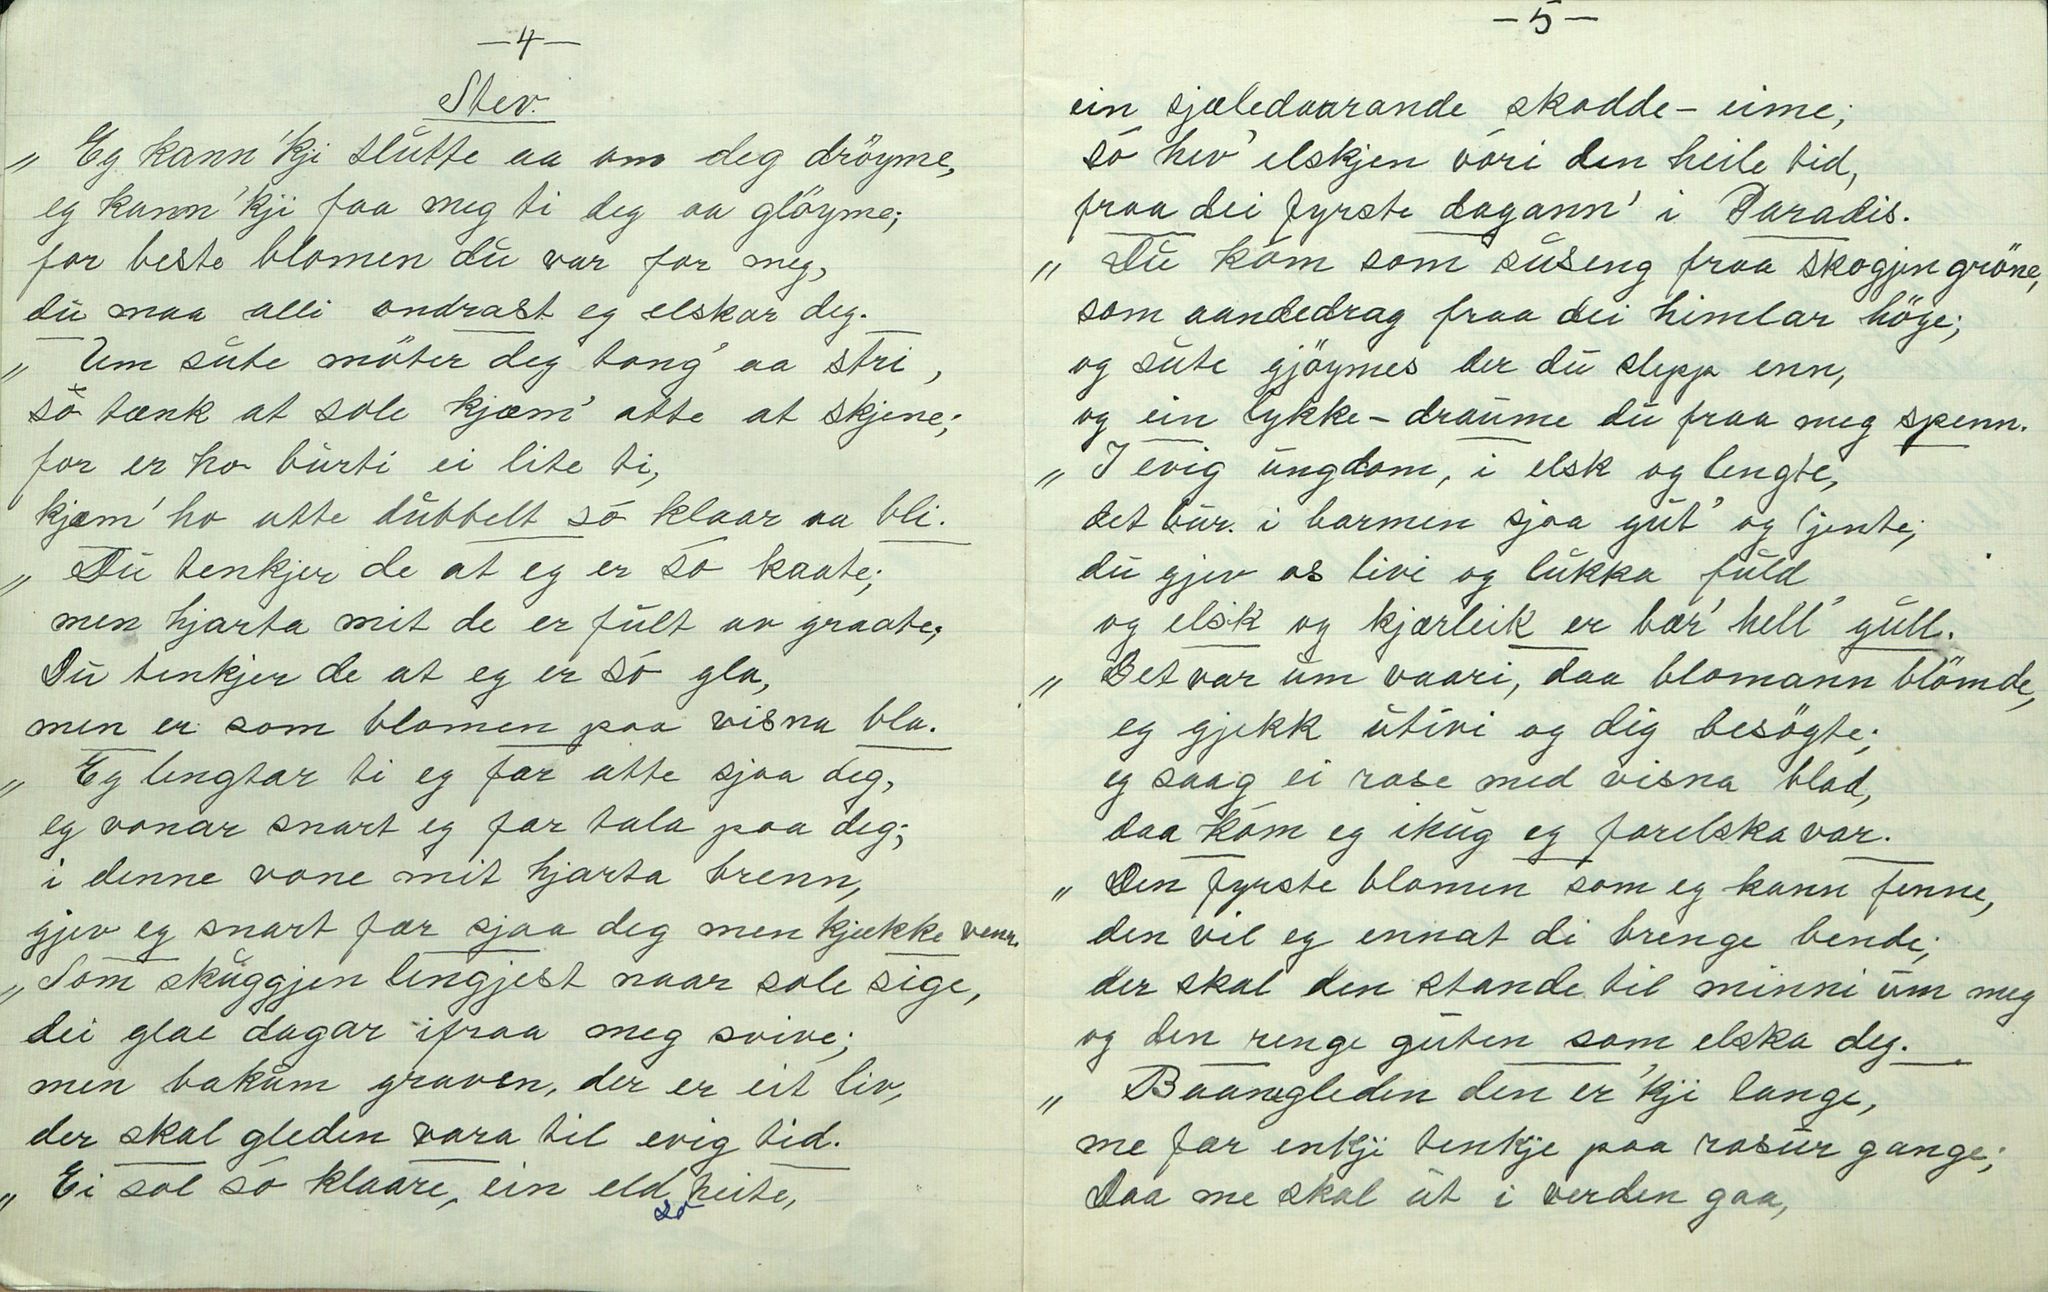 —4—
Stev.
„ Eg kann 'kji slutte aa om deg dröyme,
eg kann 'kji faa meg ti deg aa glöyme;
for beste blomen du var for meg,
du maa alli ondrast eg elskar deg.
„ Um sute möter deg tong' aa stri,
só tænk at sole kjæm' atte at skjene;
for er ho burti ei lite ti,
kjæm' ho atte dubbelt só klaar aa bli.
„ Du tenkjer de at eg er só kaate;
men hjarta mit de er fult av graate;
Du tenkjer de at eg er só gla,
men er som blomen paa visna bla.
„ Eg lengtar ti eg fær atte sjaa deg,
eg vonar snart eg fær tala paa deg;
i denne vone mit hjarta brenn,
gjev eg snart fær sjaa deg men kjekke venn.
„ Som skuggjen lengjest naar sole sige,
dei glae dagar ifraa meg svive;
men bakum graven, der er eit liv,
der skal gleden vara til evig tid.
„ Ei sol só klaare, ein eld só heite,
—5—
ein sjæledaarande skodde-eime;
só hev' elskjen vóri den heile tid,
fraa dei fyrste dagann' i Paradis.
„ Du kóm som suseng fraa skogjen gröne,
som aandedrag fraa dei himlar höge;
og sute gjöymes der du slepp enn,
og ein lykke-draume du fraa meg spenn.
„ I evig ungdom, i elsk og lengte,
det bur i barmen sjaa gut' og jente;
du gjev os livi og lukka fuld
og elsk og kjærleik er bær' hell' gull.
„ Det var um vaari, daa blomann blömde,
eg gjekk utivi og dig besögte;
eg saag ei rose med visna blad,
daa kóm eg ihug eg forelska var.
„ Den fyrste blomen som eg kann fenne,
den vil eg ennat di brenge bende;
der skal den stande til minni um meg
og den renge guten som elska deg.
„ Baanegleden den er 'kji lange,
me fær enkji tenkje paa rosur gange;
Daa me skal ut i verden gaa,